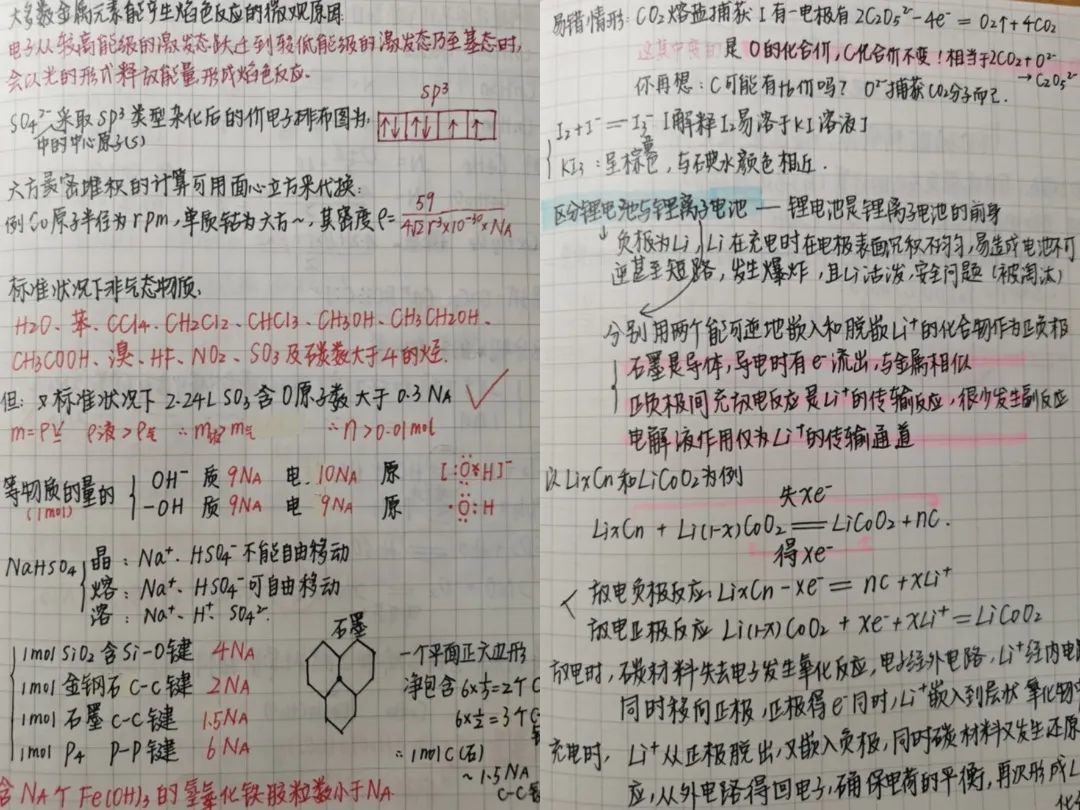 大多数金属元素能产生焰色反应的微观原因:
电子从较高能级的激发态跃迁到较低能级的激发态乃至基态时,
会以光的形式释放能量,形成焰色反应。
sp³
SO₄²⁻采取sp³类型杂化后的价电子排布图为: ↑↓ ↑↓ ↑ ↑
中的中心原子(S)
六方最密堆积的计算可用面心立方来代换:
例Co原子半径为r pm,单质钴为六方~,其密度ρ=59/(4√2 r³×10⁻³⁰×NA)
标准状况下非气态物质:
H2O、苯、CCl4、CH2Cl2、CHCl3、CH3OH、CH3CH2OH、
CH3COOH、溴、HF、NO2、SO3及碳数大于4的烃.
但: 标准状况下 2.24L SO3含O原子数大于0.3NA ✓
m=ρV ρ液>ρ气 ∴m液>m气 ∴n>0.01mol
等物质的量的
(1mol)
OH⁻ 质9NA 电10NA 原 [:O:H]⁻
-OH 质9NA 电9NA 原 ·O:H
NaHSO4
晶: Na⁺、HSO4⁻不能自由移动
熔: Na⁺、HSO4⁻可自由移动
溶: Na⁺、H⁺、SO4²⁻
1mol SiO2含Si-O键 4NA
1mol 金钢石 C-C键 2NA
1mol 石墨 C-C键 1.5NA
1mol P4 P-P键 6NA
石墨
一个平面正六边形
净包含6×1/3=2个C
6×1/2=3个C-
∴1molC(石)
~1.5NA
C-C键
含NA个Fe(OH)3的氢氧化铁胶粒数小于NA
易错情形: CO2熔盐捕获 I有一电极有 2C2O5²⁻-4e⁻=O2↑+4CO2
是O的化合价,C化合价不变!相当于2CO2+O²⁻
→C2O5²⁻
你再想:C可能有+6价吗? O²⁻捕获CO2分子而已.
I2+I⁻=I3⁻ [解释I2易溶于KI溶液]
KI3:呈棕色,与碘水颜色相近.
区分锂电池与锂离子电池 — 锂电池是锂离子电池的前身
负极为Li,Li在充电时在电极表面沉积不均匀,易造成电池不可
逆甚至短路,发生爆炸,且Li活泼,安全问题(被淘汰)
分别用两个能可逆地嵌入和脱嵌Li⁺的化合物作为正负极
石墨是导体,导电时有e⁻流出,与金属相似
正负极间充放电反应是Li⁺的传输反应,很少发生副反应
电解液作用仅为Li⁺的传输通道
以LixCn和LiCoO2为例
失xe⁻
LixCn + Li(1-x)CoO2 = LiCoO2+nC.
得xe⁻
放电负极反应: LixCn-xe⁻= nC+xLi⁺
放电正极反应 Li(1-x)CoO2+xe⁻+xLi⁺=LiCoO2
放电时,碳材料失去电子发生氧化反应,电子经外电路,Li⁺经内电路
同时移向正极,正极得e⁻同时,Li⁺嵌入到层状氧化物中
充电时, Li⁺从正极脱出,又嵌入负极,同时碳材料又发生还原
应,从外电路得回电子,确保电荷的平衡,再次形成L